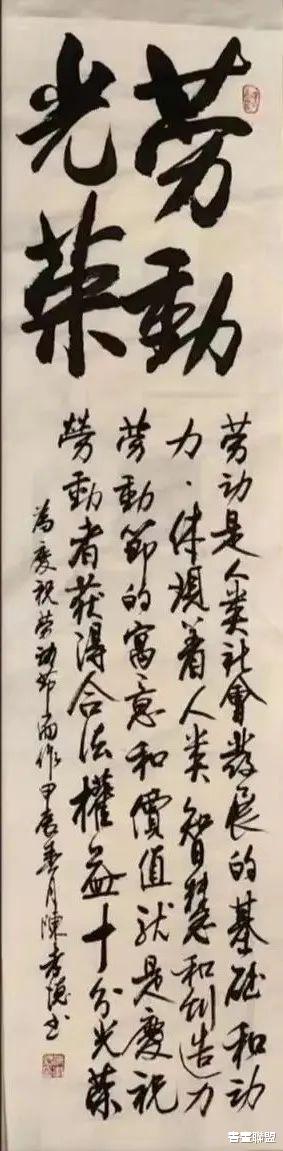 劳動
光荣
劳动是人类社會發展的基础和动
力．体現着人类智慧和创造力
劳動節的寓意和價值就是慶祝
勞動者获得合法權益十分光荣
為慶祝劳动节而作甲辰春月陳孝德书
書畫聯盟